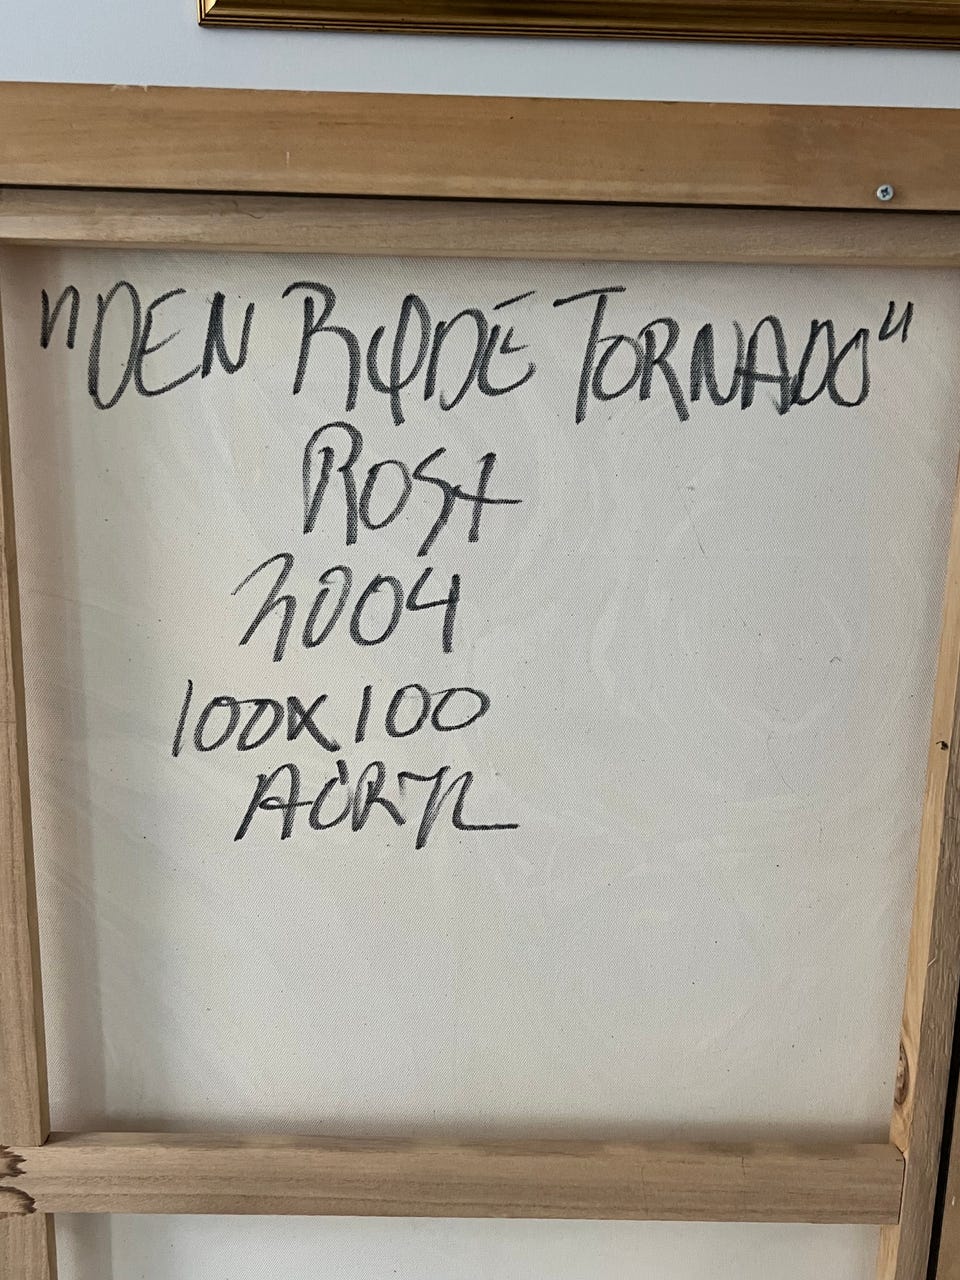 "DEN RØDE TORNADO"
ROST
2004
100X100
ACRYL